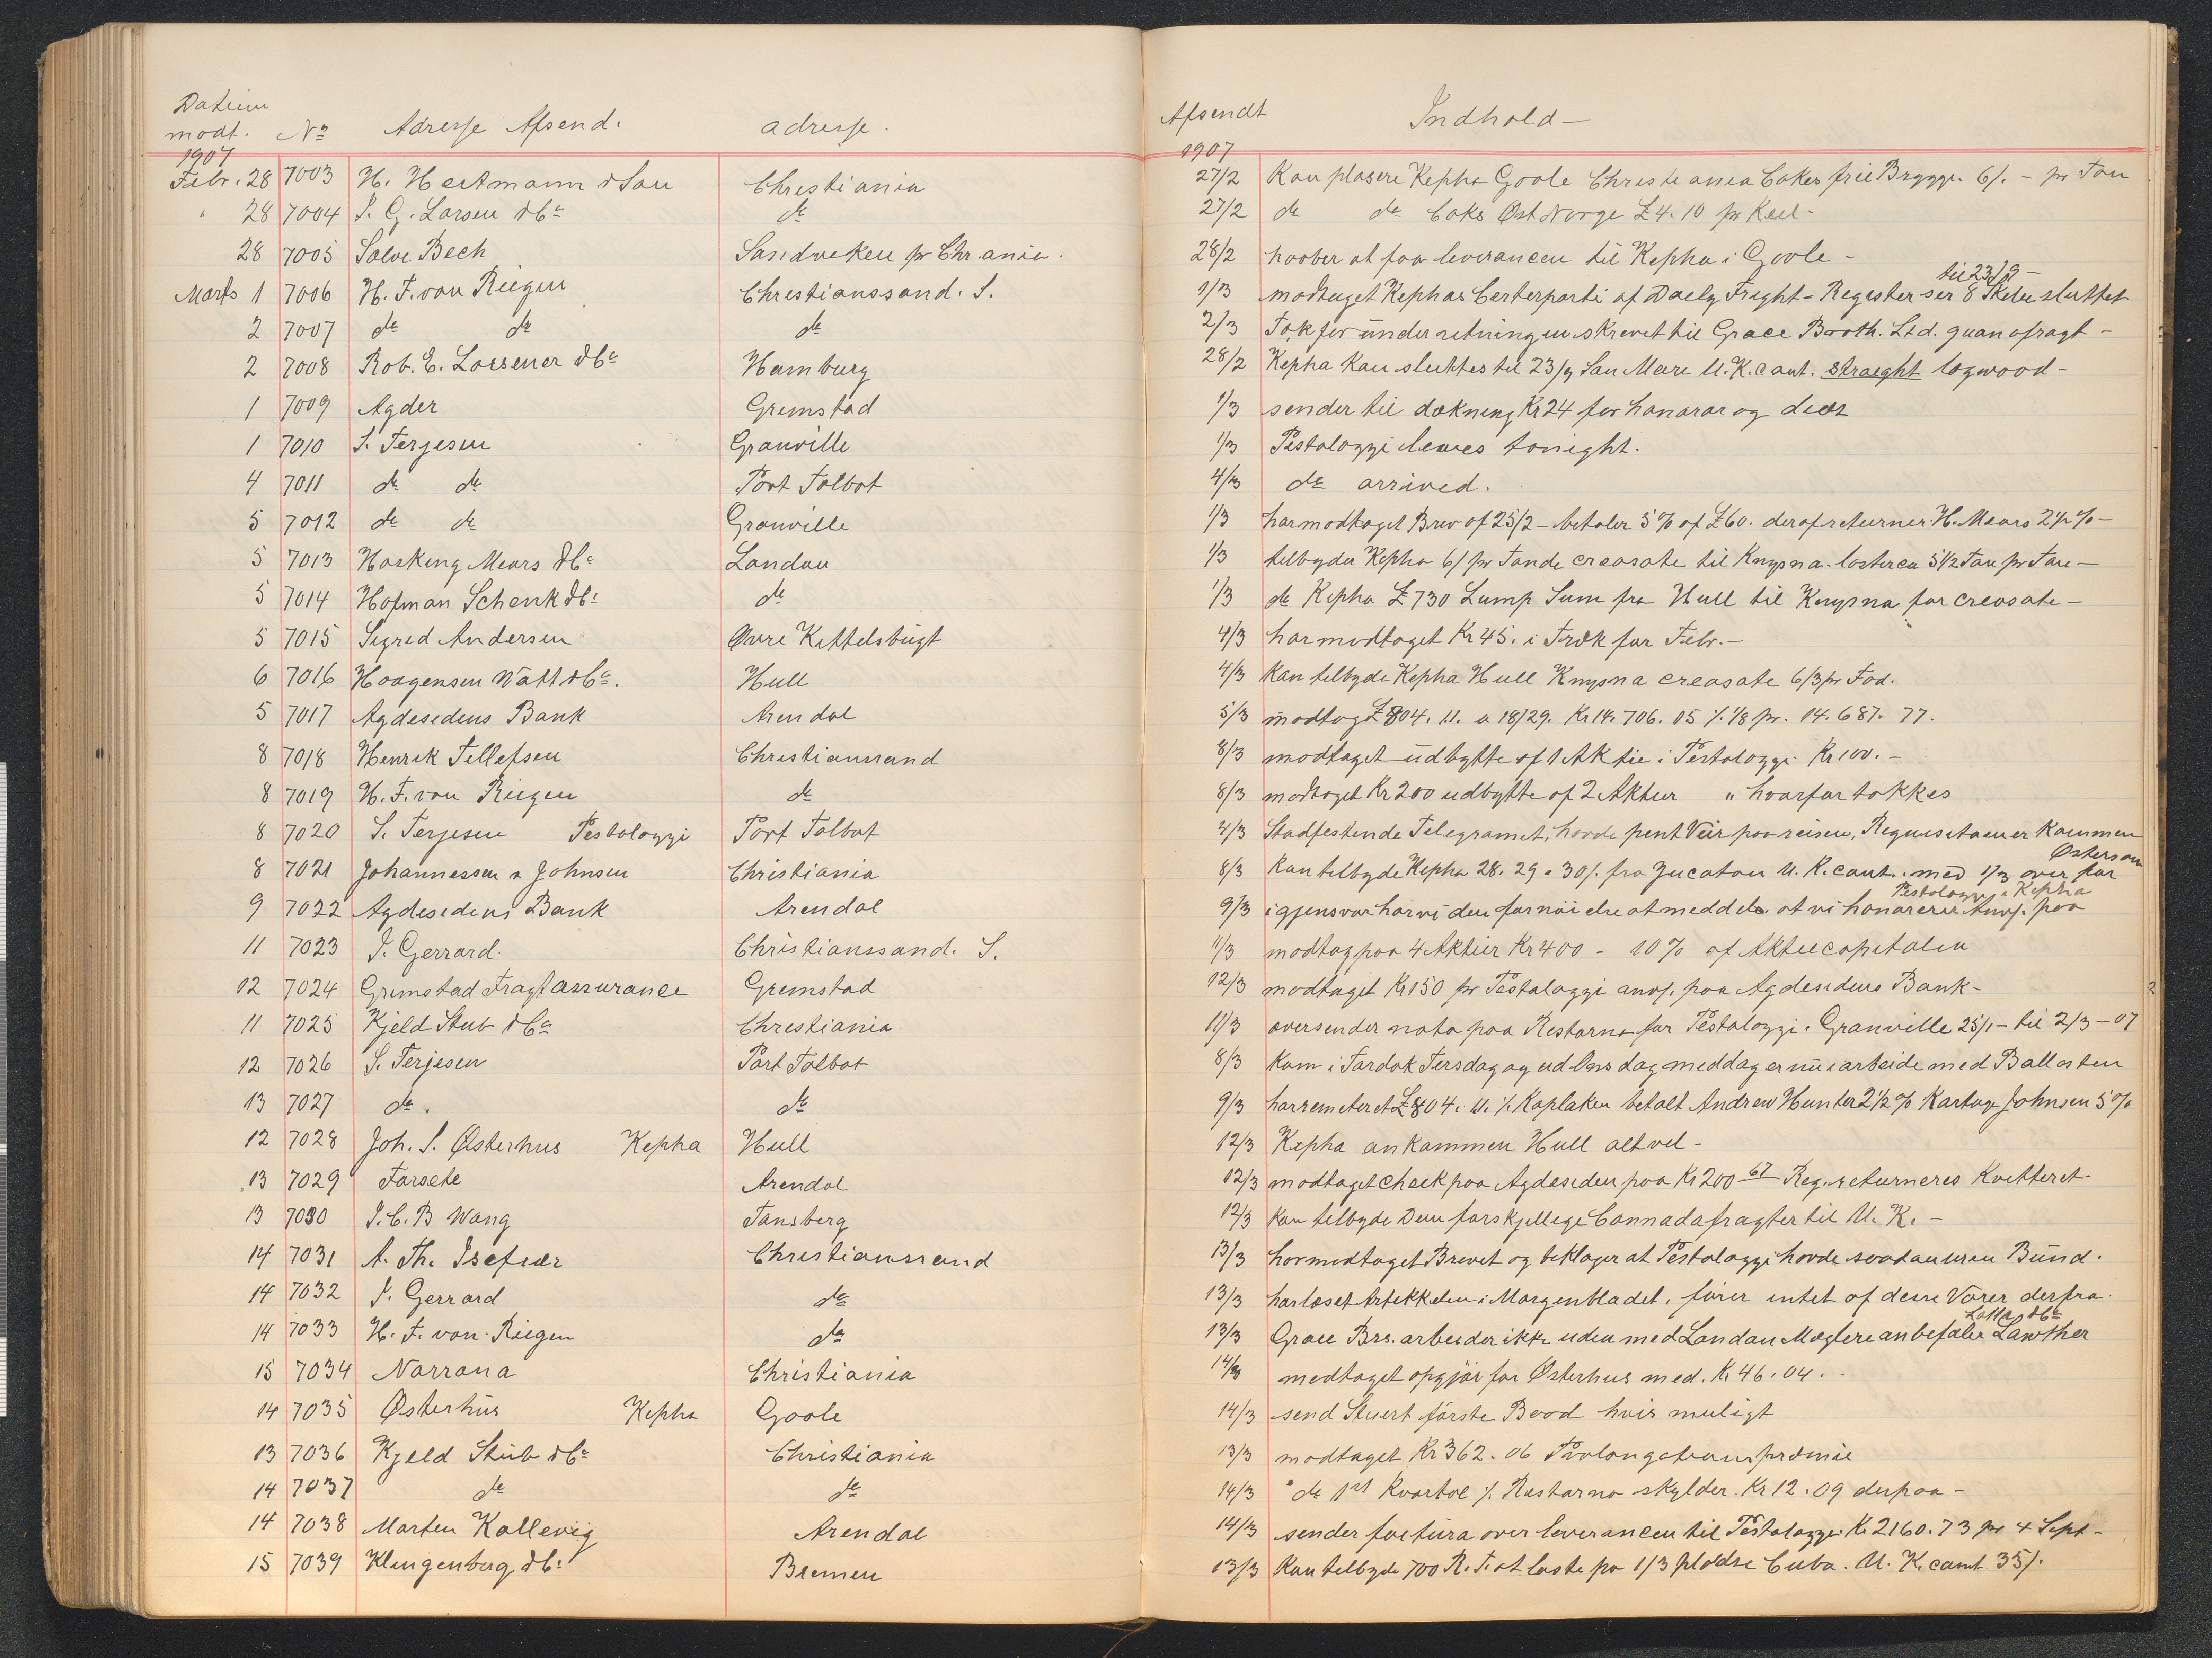 Datum
modt. No Adresse Afsend. adresse. Afsendt Indhold —
1907 1907
Febr. 28 7003 H. Heitmann & Søn Christiania 27/2 Kan plasere Kepha Goole Christiania Cokes frie Brygge. 6/. - pr Ton
" 28 7004 J. G. Larsen & Co do 27/2 do do Coks Øst Norge £4.10 pr Keel -
28 7005 Salve Bech Sandveken pr Chr.ania. 28/2 haaber at faa leverancen til Kepha i Goole -
til 23/9 -
Marts 1 7006 H. F. von Riegen Christianssand. S. 1/3 modtaget Kephas Certerparti af Daely Fright-Register ser 8 Skibe sluttet
2 7007 do do do 2/3 Tak for underretningen skrevet til Grace Broth. Ltd. quanofragt -
2 7008 Rob. E. Loesener & Co Hamburg 28/2 Kepha kan sluttes til 23/9 San Marc U.K. cont. straeght logwood -
1 7009 Agder Gremstad 1/3 sender til dækning Kr 24 for honorar og
1 7010 S. Terjesen Granville 1/3 Pestalozzi leaves tonight.
4 7011 do do Port Talbot 4/3 do arrived.
5 7012 do do Granville 1/3 har modtaget Brev af 25/2 - betaler 5% af £60. deraf returner H. Mears 2½% -
5 7013 Hosking Mears & Co London 1/3 tilbyder Kepha 6/ pr Tønde creosote til Knysna. laster ca 5½ Tøn pr Ton -
5 7014 Hofman Schenk & Co do 1/3 do Kepha £730 Lump Sum fra Hull til Knysna for creosote -
5 7015 Sigred Andersen Øvre Kittelsbugt 4/3 har modtaget Kr 45. i Træk for Febr. -
6 7016 Haagensen Watt & Co. Hull 4/3 Kan tilbyde Kepha Hull Knysna creosote 6/3 pr Fad.
5 7017 Agdesidens Bank Arendal 5/3 modtog £804. 11. a 18/29. Kr 14.706. 05 ⁒ 1/8 pr. 14.687. 77.
8 7018 Henrik Tellefsen Christianssand 8/3 modtaget udbytte af 1 Aktie i Pestalozzi Kr 100. -
8 7019 H. F. von Riegen do 8/3 modtaget Kr 200 udbytte af 2 Aktier " hvorfor takkes
8 7020 S. Terjesen Pestalozzi Port Talbot 4/3 Stadfestende Telegramet, havde pent Veir paa reisen, Requisitaen er kommen
Østersøen
8 7021 Johannessen & Johnsen Christiania 8/3 kan tilbyde Kepha 28. 29 a 30/. fra Jucatan U. K. cont. med 1/3 over for
Pestalozzi & Kepha
9 7022 Agdesidens Bank Arendal 9/3 igjensvar har vi den fornøielse at meddele at vi honorerer Anv. paa
11 7023 J. Gerrard. Christianssand. S. 11/3 modtog paa 4 Aktier Kr 400 - 10% af Aktiecapitalen
12 7024 Grimstad Fragtassurance Gremstad 12/3 modtaget Kr 150 pr Pestalozzi anv. paa Agdesidens Bank -
11 7025 Kjeld Stub & Co Christiania 11/3 oversender nota paa Restarno for Pestalozzi. Granville 25/1 - til 2/3 - 07
12 7026 S. Terjesen Port Talbot 8/3 kom i Tørdok Tersdag og ud Onsdag meddag er nu i arbeide med Ballasten
13 7027 do. do 9/3 har remeteret £804. 11. ⁒ Kaplaken betalt Andrew Hunter 2½% Johnsen 5%
12 7028 Joh. S. Østerhus Kepha Hull 12/3 Kepha ankommen Hull alt vel -
13 7029 Farsete Arendal 12/3 modtaget Check paa Agdesiden paa Kr 200 67 Reg. returneres kvitteret -
13 7030 J. C. B Wang Tønsberg 12/3 kan tilbyde Dem forskjellige Cannadafragter til U. K. -
14 7031 A. Th. Isefiær Christianssand 13/3 har modtaget Brevet og beklager at Pestalozzi havde saadan uren Bund.
14 7032 J. Gerrard do 13/3 har læset Artikkelen i Morgenbladet, fører intet af desse Varer derfra.
Latta & Co
14 7033 H. F. von Riegen do 13/3 Grace Brs. arbeider ikke uden med London Mæglere anbefaler Lawther
15 7034 Norrøna Christiania 14/3 modtaget opgjør for Østerhus med. Kr 46.04.
14 7035 Østerhus Kepha Goole 14/3 send Stuert første Baad hvis muligt
13 7036 Kjeld Stub & Co Christiania 13/3 modtaget Kr 362. 06 Prolongationspræmie
14 7037 do do 14/3 " do 1st Kvartal ⁒ Restarno skylder. Kr 12.09 derpaa -
14 7038 Morten Kallevig Arendal 14/3 sender factura over leverancen til Pestalozzi Kr 2160.73 pr 4 Sept -
15 7039 Klingenberg & Co Bremen 13/3 Kan tilbyde 700 R. T. at laste pa 1/3 pladse Cuba. U. K. cont 35/.